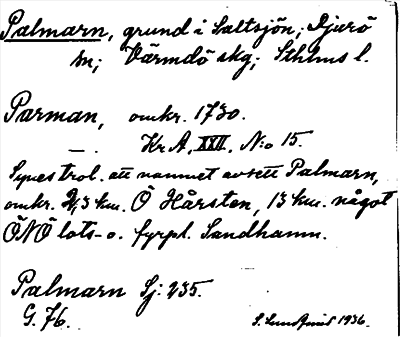 Palmarn, grund i Saltsjön; Djurö
sn; Värmdö skg; Sthlms l.
Parman, omkr. 1730.
—. Kr A, XXII, N:o 15.
Synes trol. att namnet avsett Palmarn,
omkr. 2,3 km. Ö Hårsten, 13 km. något
ÖNÖ lots- o. fyrpl. Sandhamn.
Palmarn Sj: 235.
G. 76. S. Lundquist 1936.